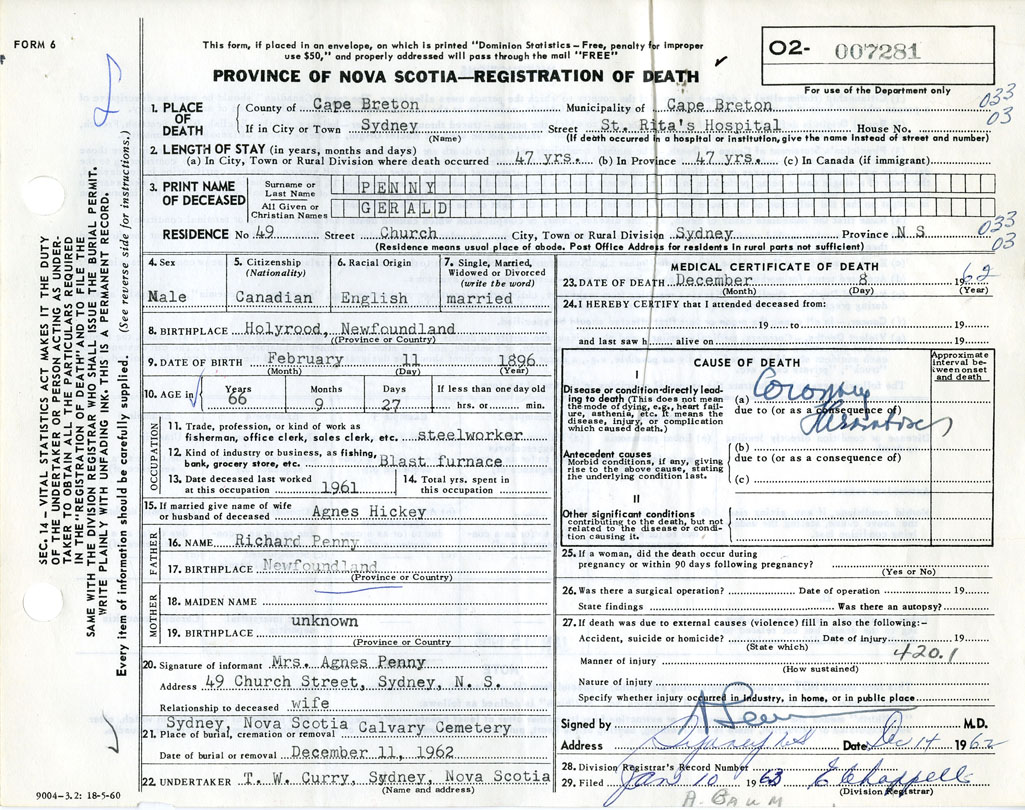 FORM 6
This form, if placed in an envelope, on which is printed "Dominion Statistics – Free, penalty for improper
use $50," and properly addressed will pass through the mail "FREE"
PROVINCE OF NOVA SCOTIA—REGISTRATION OF DEATH
02- 007281
For use of the Department only
1. PLACE OF DEATH
County of Cape Breton Municipality of Cape Breton 033
If in City or Town Sydney Street St. Rita's Hospital House No. 03
(Name) (If death occurred in a hospital or institution, give the name instead of street and number)
2. LENGTH OF STAY (in years, months and days)
(a) In City, Town or Rural Division where death occurred 47 yrs. (b) In Province 47 yrs. (c) In Canada (if immigrant)
3. PRINT NAME OF DECEASED
Surname or Last Name PENNY
All Given or Christian Names GERALD
RESIDENCE No 49 Street Church City, Town or Rural Division Sydney Province N S 033 03
(Residence means usual place of abode. Post Office Address for residents in rural parts not sufficient)
4. Sex Male
5. Citizenship (Nationality) Canadian
6. Racial Origin English
7. Single, Married, Widowed or Divorced (write the word) married
8. BIRTHPLACE Holyrood, Newfoundland
(Province or Country)
9. DATE OF BIRTH February 11 1896
(Month) (Day) (Year)
10. AGE in Years 66 Months 9 Days 27 If less than one day old hrs. or min.
OCCUPATION
11. Trade, profession, or kind of work as
fisherman, office clerk, sales clerk, etc. steelworker
12. Kind of industry or business, as fishing,
bank, grocery store, etc. Blast furnace
13. Date deceased last worked at this occupation 1961
14. Total yrs. spent in this occupation
15. If married give name of wife
or husband of deceased Agnes Hickey
FATHER
16. NAME Richard Penny
17. BIRTHPLACE Newfoundland
(Province or Country)
MOTHER
18. MAIDEN NAME
unknown
19. BIRTHPLACE
(Province or Country
20. Signature of informant Mrs. Agnes Penny
Address 49 Church Street, Sydney, N. S.
Relationship to deceased wife
Sydney, Nova Scotia Calvary Cemetery
21. Place of burial, cremation or removal
Date of burial or removal December 11, 1962
22. UNDERTAKER T. W. Curry, Sydney, Nova Scotia
(Name and address)
9004-3.2: 18-5-60
MEDICAL CERTIFICATE OF DEATH
23. DATE OF DEATH December 8 1962
(Month) (Day) (Year)
24. I HEREBY CERTIFY that I attended deceased from:
19 to 19
and last saw h alive on 19
CAUSE OF DEATH
Approximate interval between onset and death
I
Disease or condition directly leading to death (This does not mean
the mode of dying, e.g., heart failure, asthenia, etc. It means the
disease, injury, or complication
which caused death.)
(a) Coronary
due to (or as a consequence of)
Thrombosis
Antecedent causes
Morbid conditions, if any, giving
rise to the above cause, stating
the underlying condition last.
(b)
due to (or as a consequence of)
(c)
II
Other significant conditions
contributing to the death, but not
related to the disease or condition
causing it.
25. If a woman, did the death occur during
pregnancy or within 90 days following pregnancy?
(Yes or No)
26. Was there a surgical operation? Date of operation 19
State findings Was there an autopsy?
27. If death was due to external causes (violence) fill in also the following:-
Accident, suicide or homicide? Date of injury 19
(State which) 420.1
Manner of injury
(How sustained)
Nature of injury
Specify whether injury occurred in industry, in home, or in public place
Signed by M.D.
Address Sydney NS Date Dec 14 1962
28. Division Registrar's Record Number
29. Filed Jan 10 1963 E Chappell
(Division Registrar)
A. BAUM
SEC. 14 – VITAL STATISTICS ACT MAKES IT THE DUTY
OF THE UNDERTAKER OR PERSON ACTING AS UNDERTAKER
TO OBTAIN ALL THE PARTICULARS REQUIRED
IN THE "REGISTRATION OF DEATH" AND TO FILE THE
SAME WITH THE DIVISION REGISTRAR WHO SHALL ISSUE THE BURIAL PERMIT.
WRITE PLAINLY WITH UNFADING INK. THIS IS A PERMANENT RECORD.
Every item of information should be carefully supplied. (See reverse side for instructions.)